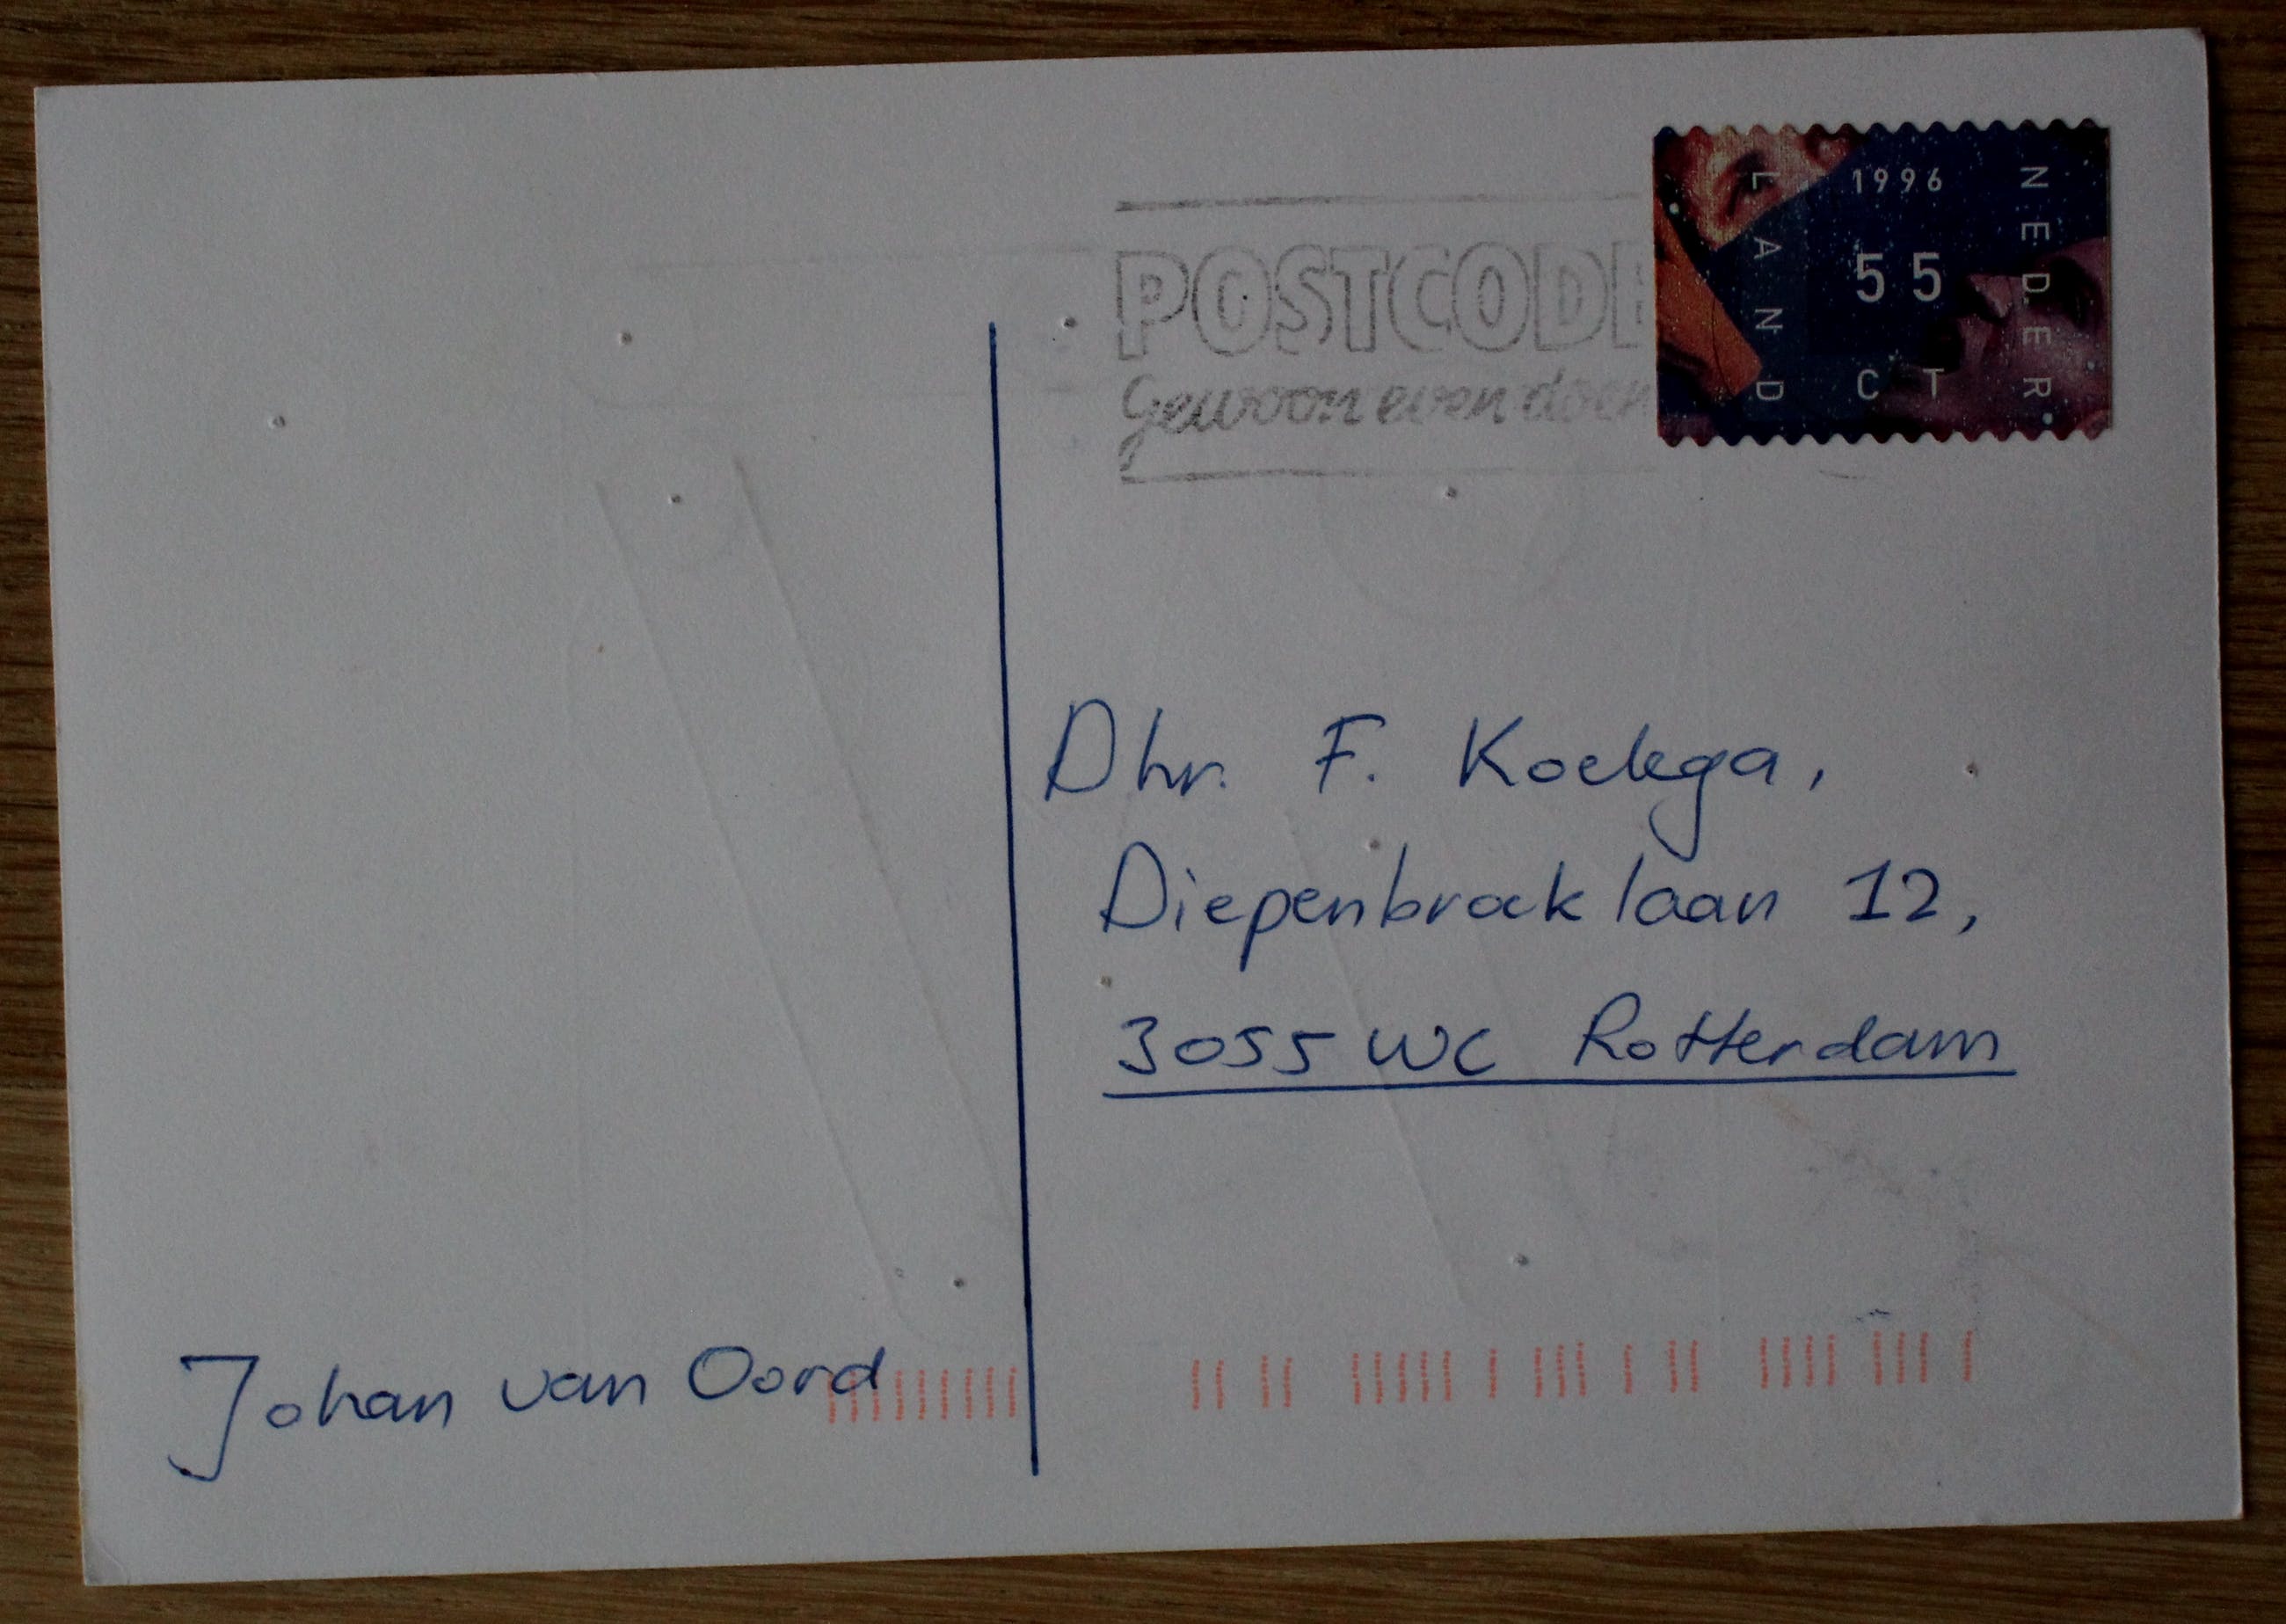 POSTCODE
Gewoon even doen
1996
55
CT
NEDER
LAND
Dhr. F. Koelega,
Diepenbrocklaan 12,
3055 WC Rotterdam
Johan van Oord